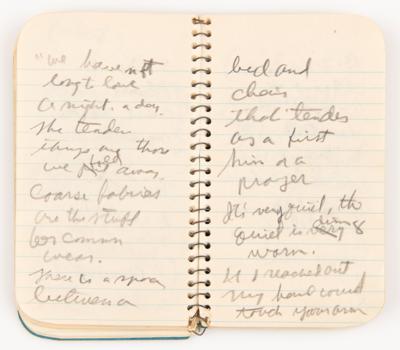 "we have not
long to love
a night. a day.
The tender
things are those
we fold away.
Coarse fabrics
are the stuff
for common
wear.
There is a space
between a
bed and
chair
that tender
as a first
him or a
prayer
It's very quiet, the
quiet is very &
warm.
If I reached out
my hand could
touch your arm